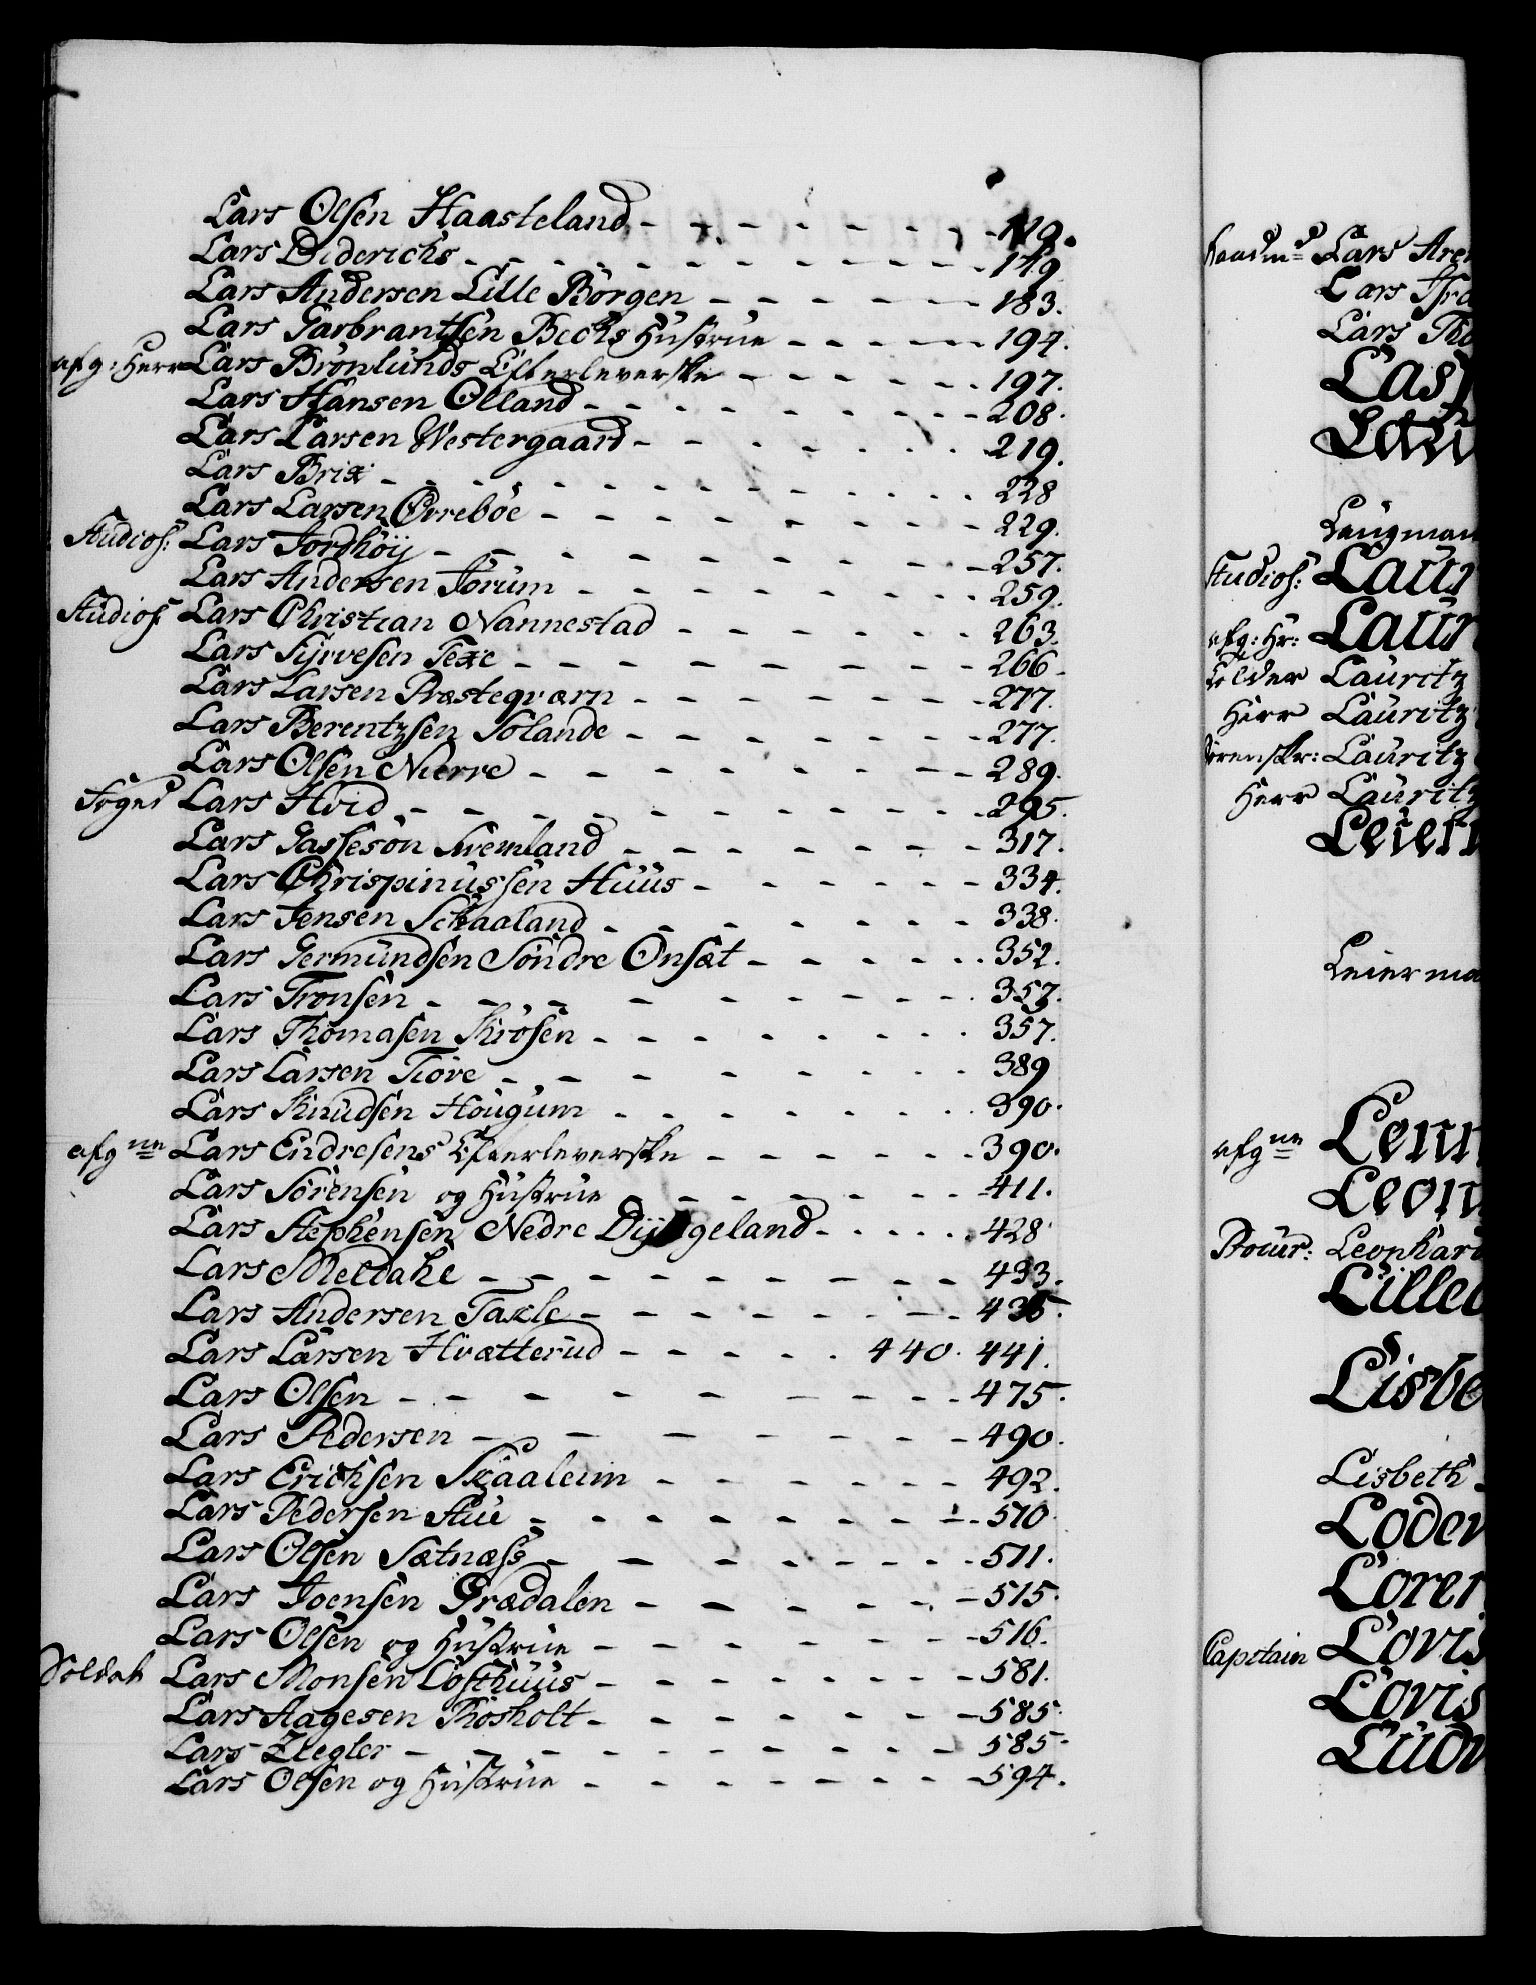 Lars Olsen Haasteland - - - - - - - 119.
Lars Diderichs - - - - - - - - - 149
Lars Andersen Lille Borgen - - - - - - 183.
Lars Garbrantsen Bechs Hustrue - - - - - 194.
afg: Herr Lars Brönlunds Efterleverske - - - - - - 197.
Lars Hansen Olland - - - - - - - - 208.
Lars Larsen Westergaard - - - - - - 219.
Lars Brix - - - - - - - - - - 228
Lars Larsen Øvrebøe - - - - - - - - 229.
Studios: Lars Jordhöÿ - - - - - - - - 257.
Lars Andersen Jorum - - - - - - - 259.
Studios: Lars Christian Nannestad - - - - - - 263.
Lars Sÿrvesen Texe - - - - - - - - 266.
Lars Larsen Præsteqværn - - - - - - 277.
Lars Berentzsen Solande - - - - - - 277.
Lars Olsen Nierre - - - - - - - - 289.
Foged Lars Hvid - - - - - - - - - 295.
Lars Gassesön Svemland - - - - - - - 317.
Lars Chrispinussen Huus - - - - - - 334.
Lars Jensen Schaaland - - - - - - - 338.
Lars Germundsen Söndre Onsæt - - - - - 352.
Lars Tronsen - - - - - - - - - 357.
Lars Thomasen Krosen - - - - - - - 357.
Lars Larsen Tiöre - - - - - - - - 389
Lars Knudsen Hougum - - - - - - - 390.
afgne Lars Endresens Efterleverske - - - - - - 390.
Lars Sörensen og Hustrue - - - - - - 411.
Lars Stephensen Nedre geland - - - - - 428
Lars Meldahl - - - - - - - - - 433.
Lars Andersen Taxle - - - - - - - 435.
Lars Larsen Hvætterud - - - - - 440. 441.
Lars Olsen - - - - - - - - - 475.
Lars Pedersen - - - - - - - - 490.
Lars Erichsen Skaaleim - - - - - - 492.
Lars Pedersen Stue - - - - - - - - 510.
Lars Olsen Sætnæss - - - - - - - - 511.
Lars Joensen Grædalen - - - - - - 515.
Lars Olsen og Hustrue - - - - - - - 516.
Soldat Lars Monsen Lofthuus - - - - - - - 581.
Lars Aagesen Rosholt - - - - - - - 585.
Lars Ziegler - - - - - - - - - 585.
Lars Olsen og Hustrue - - - - - - - 594.
Lars Aren
Lars
Lars Tho
Las
Laugman
Studios: Laur
afg: Hr: Laur
Lauritz
Herr Lauritz
Lauritz
Herr Lauritz
Leierm
Leierma
afgne Lenn
Leon
Procur: Leonhard
Lilled
Lisbe
Lisbeth
Loder
Loren
Capitain Lovis
Lovis
Ludv